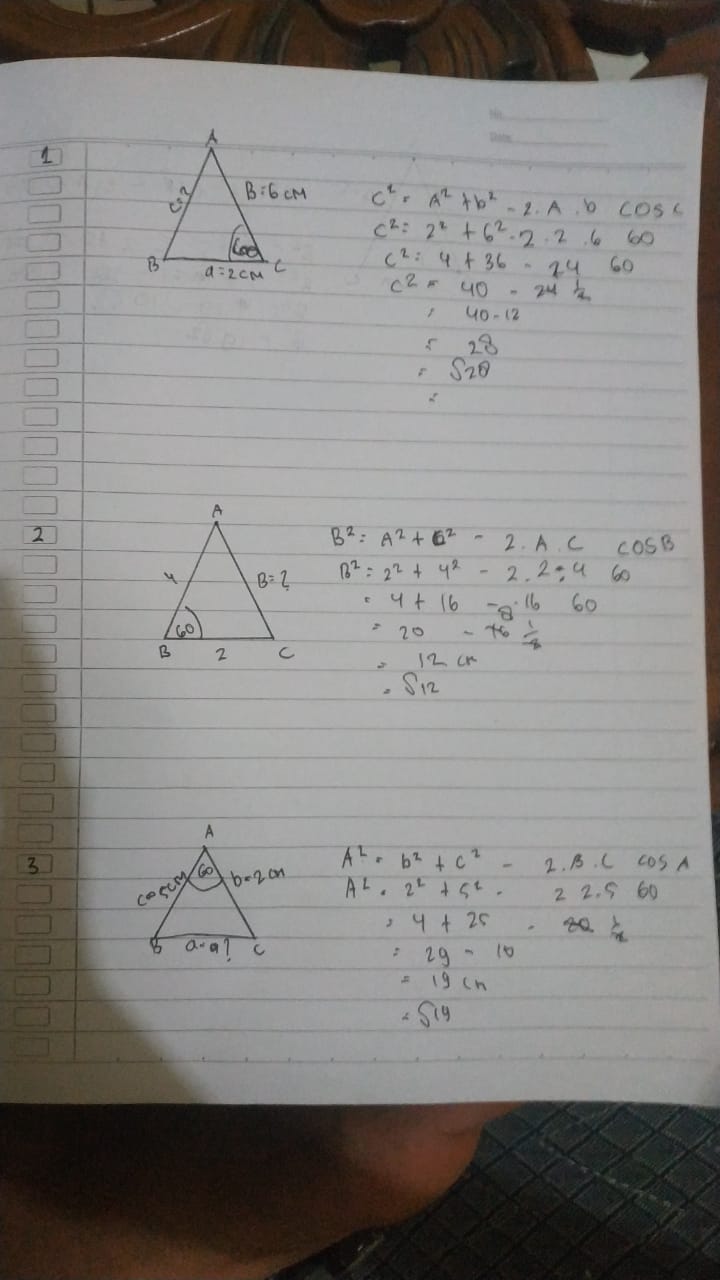 No.
Date.
1
A
c=?
B=6 cm
60
B
a=2cm
C
C² = A² + b² - 2. A. b cos c
C² = 2² + 6² - 2. 2. 6 60
C² = 4 + 36 - 24 60
C² = 40 - 24 ½
= 40-12
= 28
= √28
=
2
A
4
B=?
60
B
2
C
B² = A² + C² - 2. A. C cos B
B² = 2² + 4² - 2. 2. 4 60
= 4 + 16 - 16 60
= 20 - 16 ½
8
= 12 cm
= √12
3
A
60
c=5cm
b=2cm
B
a=a?
C
A² = b² + c² - 2. B. C cos A
A² = 2² + 5² - 2 2. 5 60
= 4 + 25 - 20 ½
= 29 - 10
= 19 cm
= √19